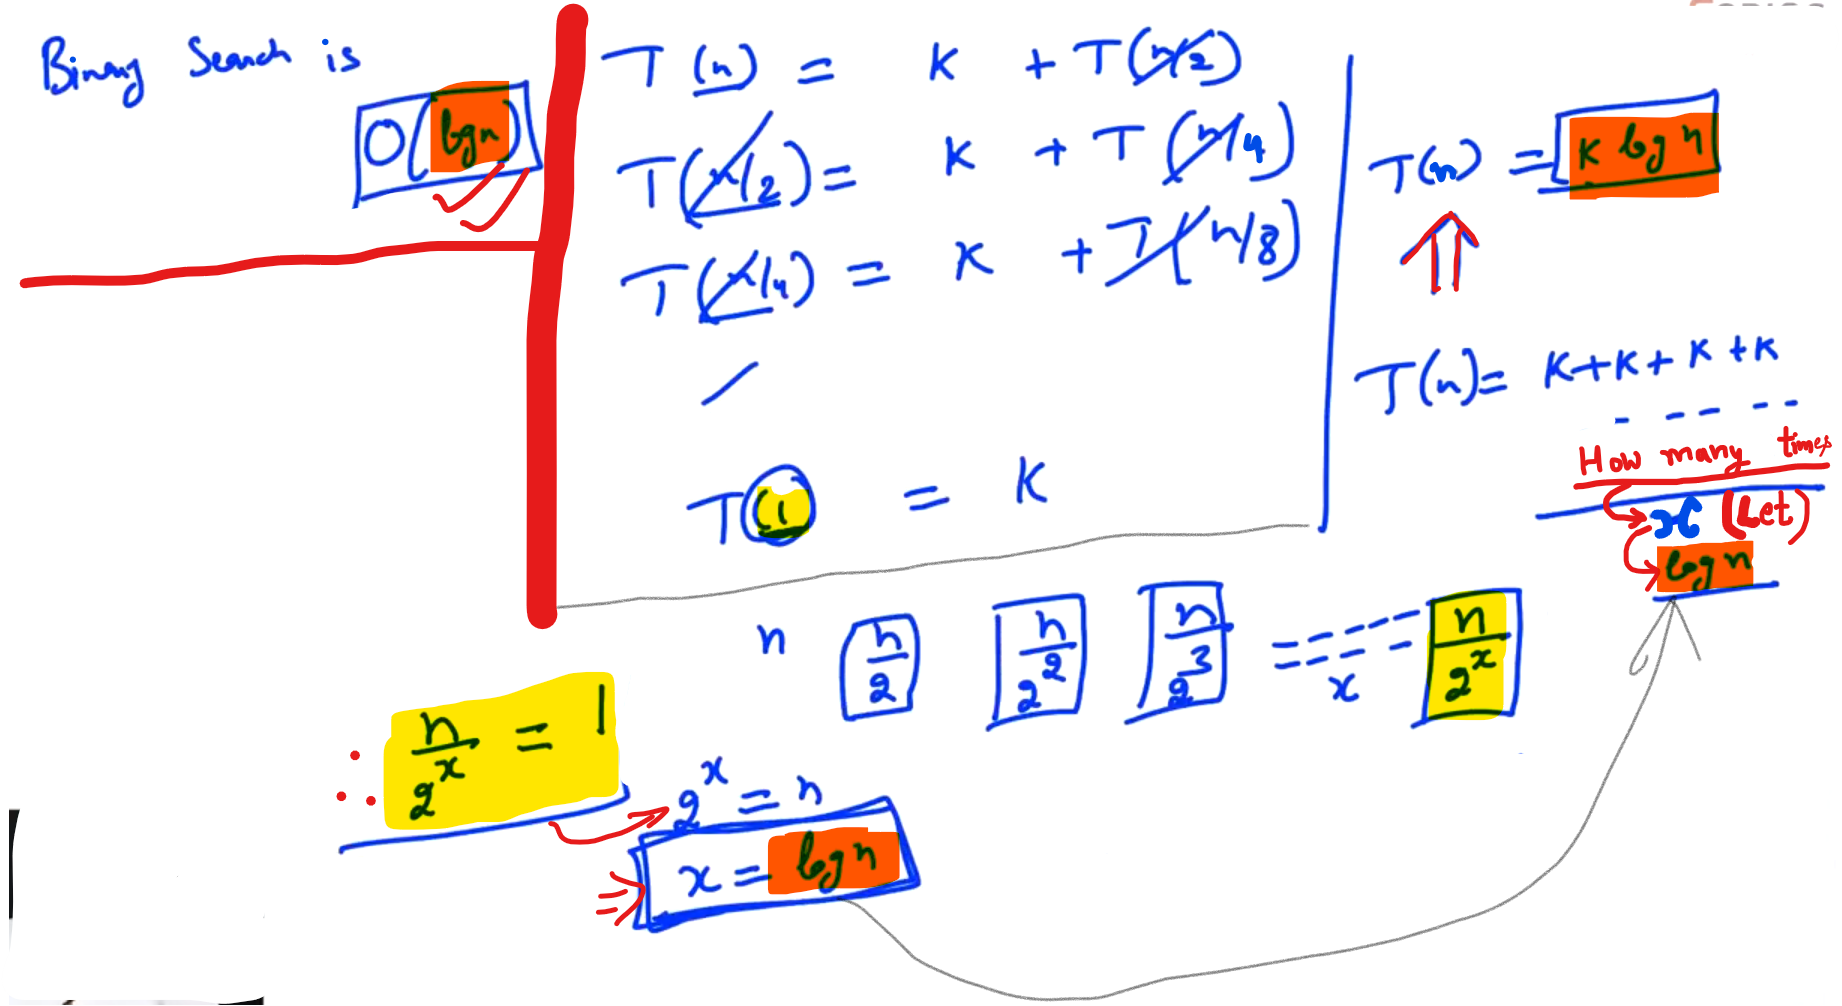 Binary Search is
O(log n)
T(n) = K + T(n/2)
T(n/2) = K + T(n/4)
T(n/4) = K + T(n/8)
T(1) = K
T(n) = K log n
T(n) = K + K + K + K
- - - - -
How many times
x (Let)
log n
n n/2 n/2^2 n/2^3 = = - - - - x n/2^x
∴ n/2^x = 1
2^x = n
x = log n